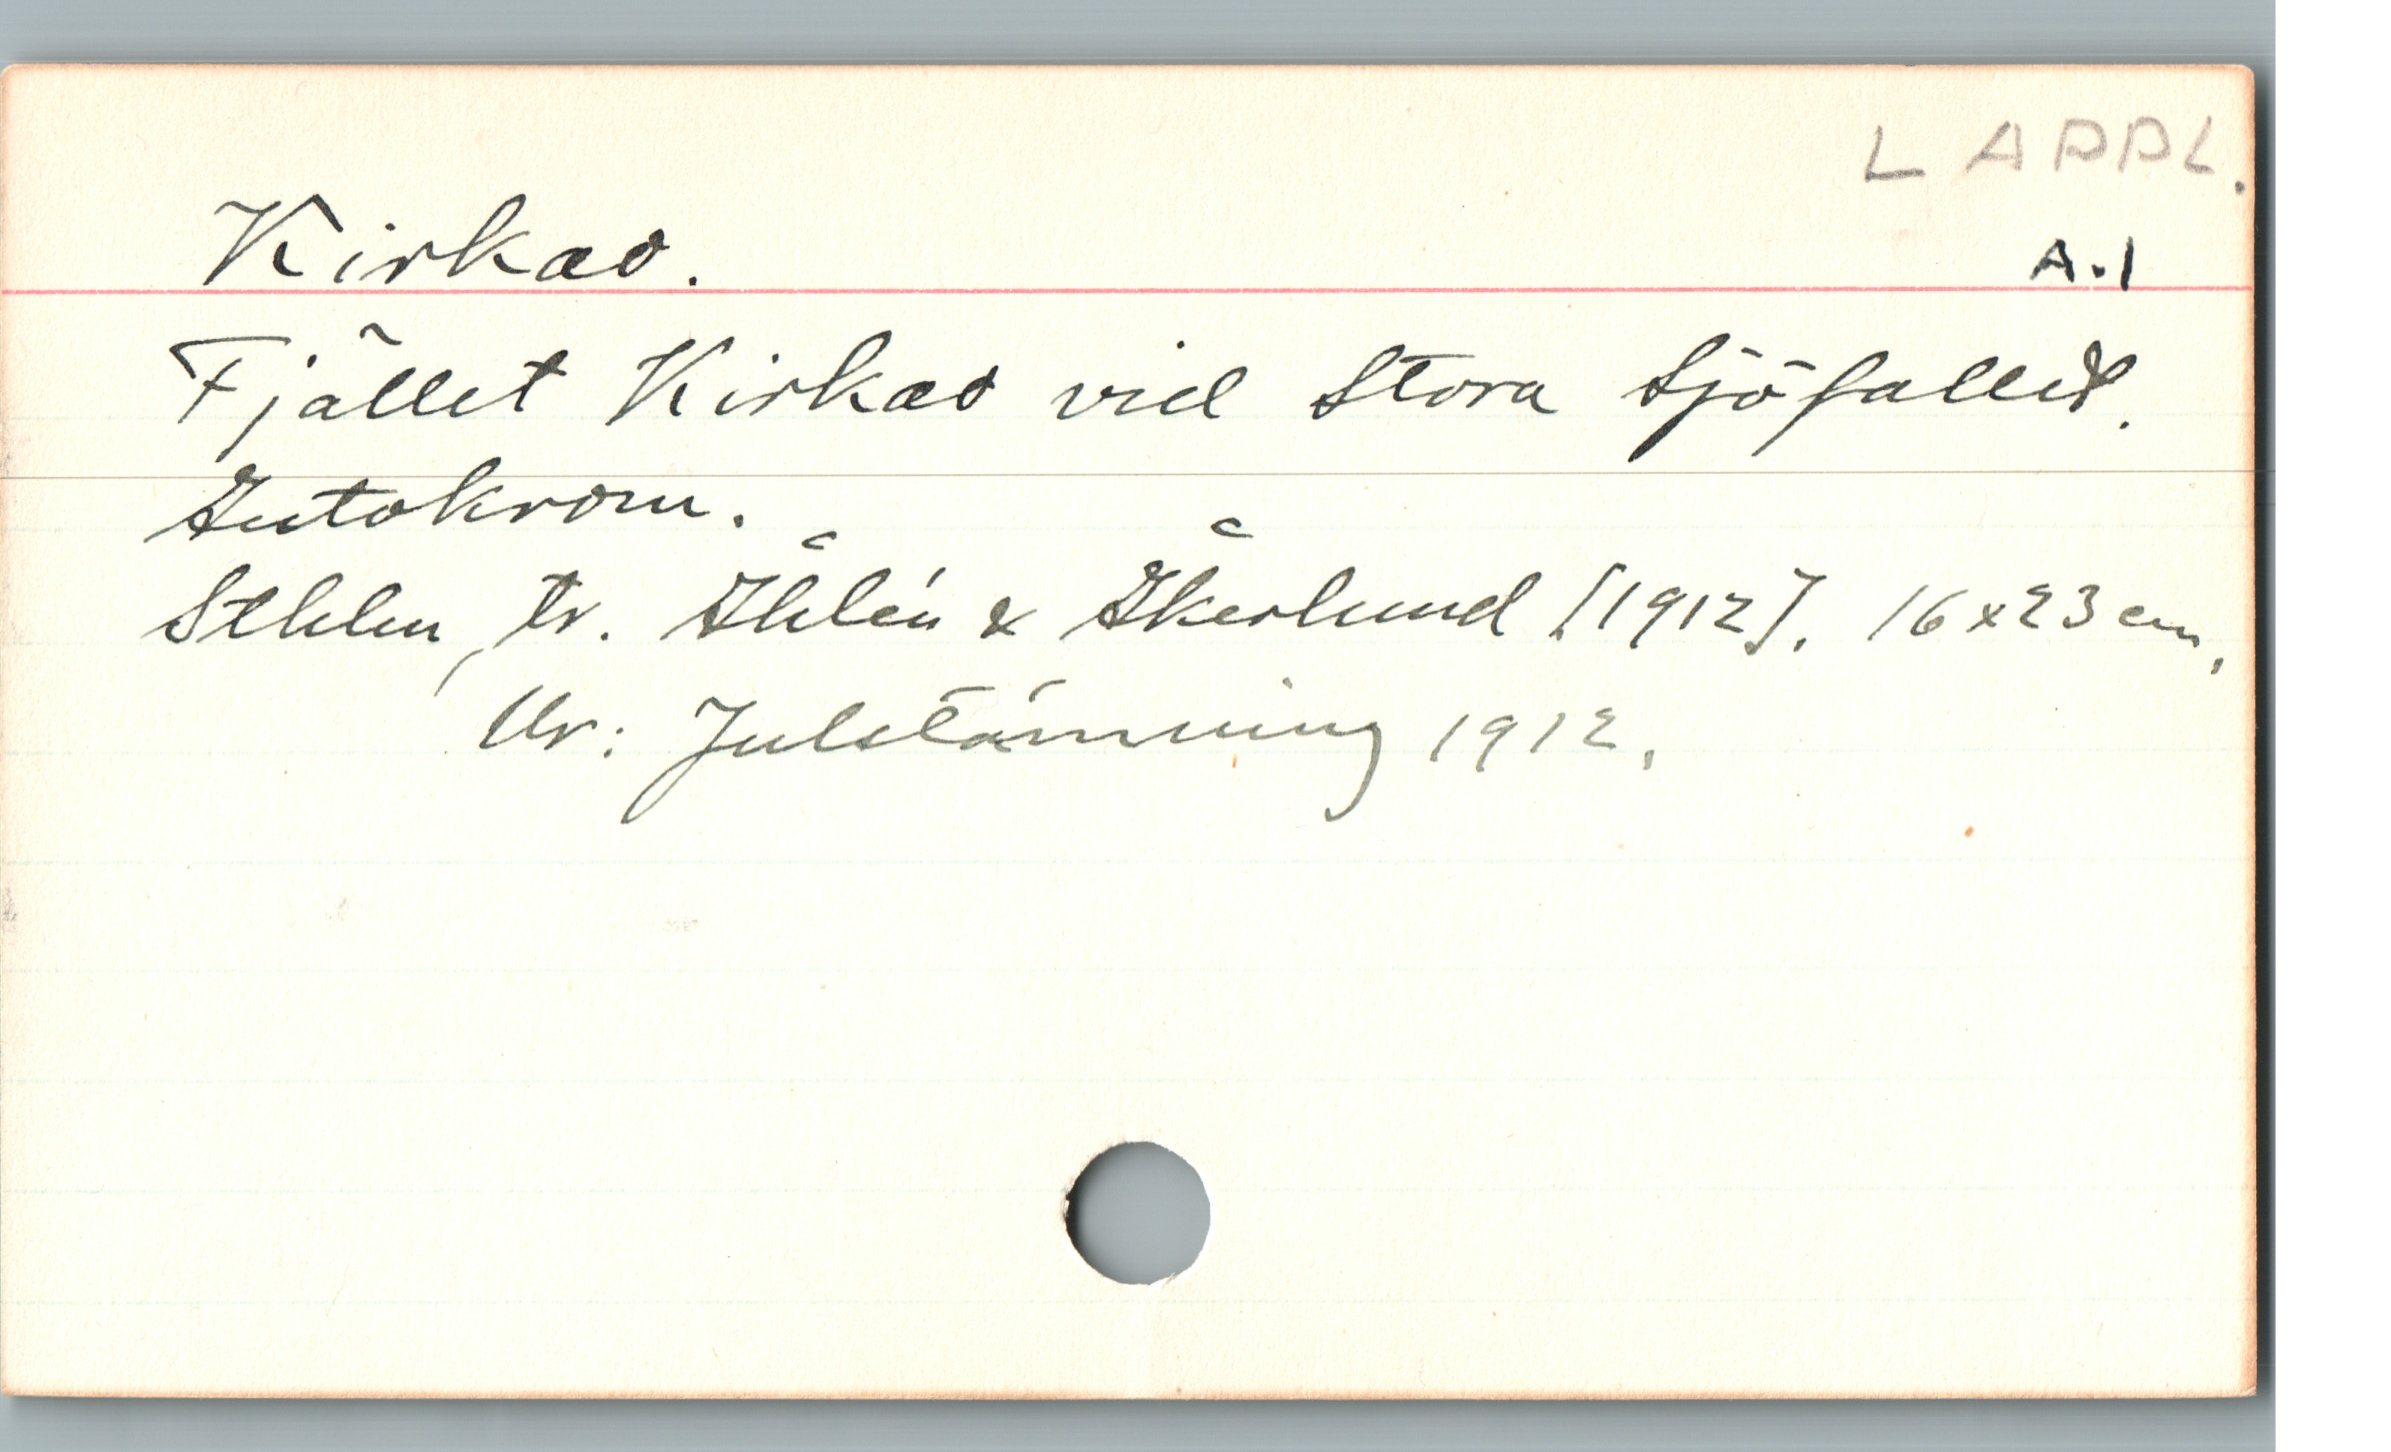 LAPPL.
Kirkao.
A.1
Fjället Kirkao vid Stora Sjöfallet.
Autokrom.
Sthlm, tr. Åhlén & Åkerlund [1912]. 16x23 cm.
Ur: Julstämning 1912.